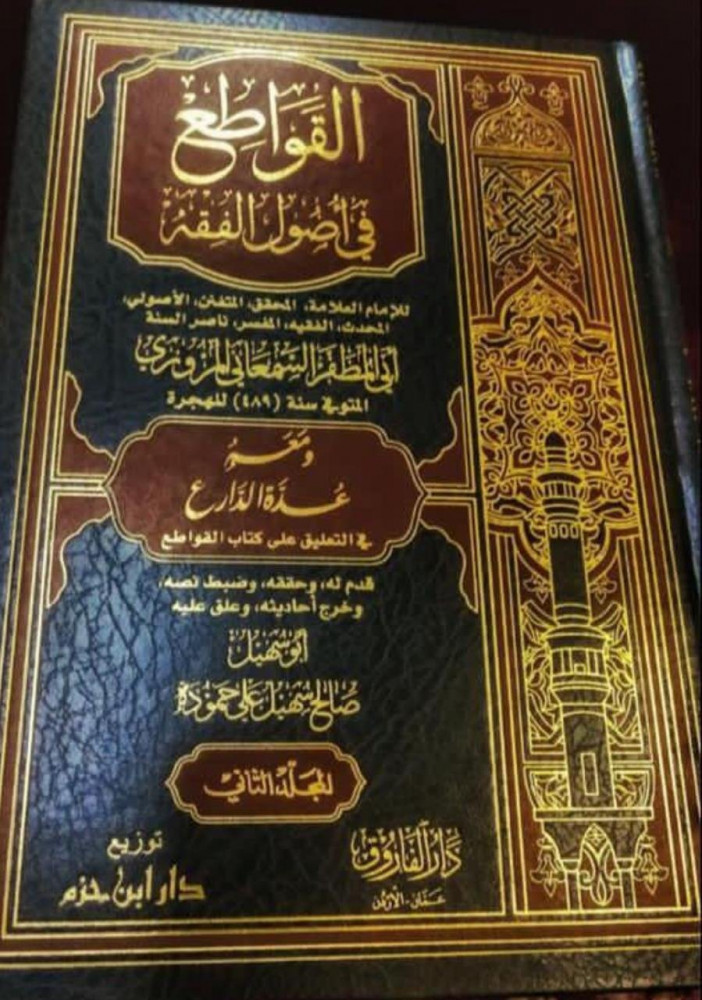 القواطع
في أصول الفقه
للإمام العلامة، المحقق، المتفنن، الأصولي،
المحدث، الفقيه، المفسر، ناصر السنة
أبي المظفر السمعاني المروزي
المتوفى سنة (٤٨٩) للهجرة
ومعه
عدة الدارع
في التعليق على كتاب القواطع
قدم له، وحققه، وضبط نصه،
وخرج أحاديثه، وعلق عليه
أبو سهيل
صالح سهيل علي حمودة
المجلد الثاني
دار الفاروق
عمان - الأردن
توزيع
دار ابن حزم